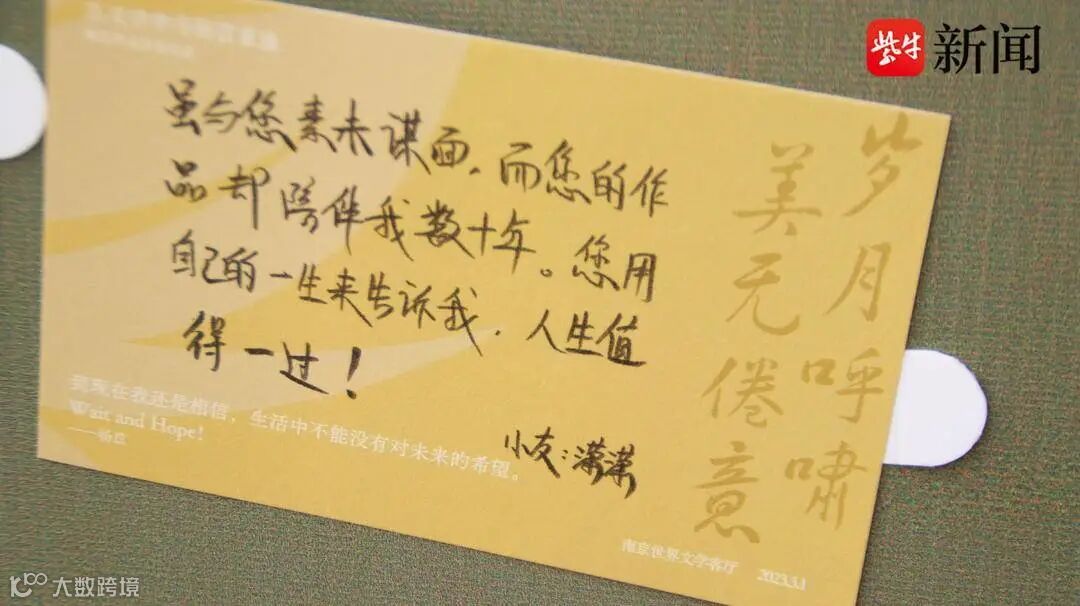 紫牛新闻
虽与您素未谋面，而您的作
品却陪伴我数十年。您用
自己的一生来告诉我，人生值
得一过！
小友：潇潇
岁月呼啸
美无倦意
到现在我还是相信，生活中不能没有对未来的希望。
Wait and Hope!
——杨苡
南京世界文学客厅 2023.3.1
大数跨境